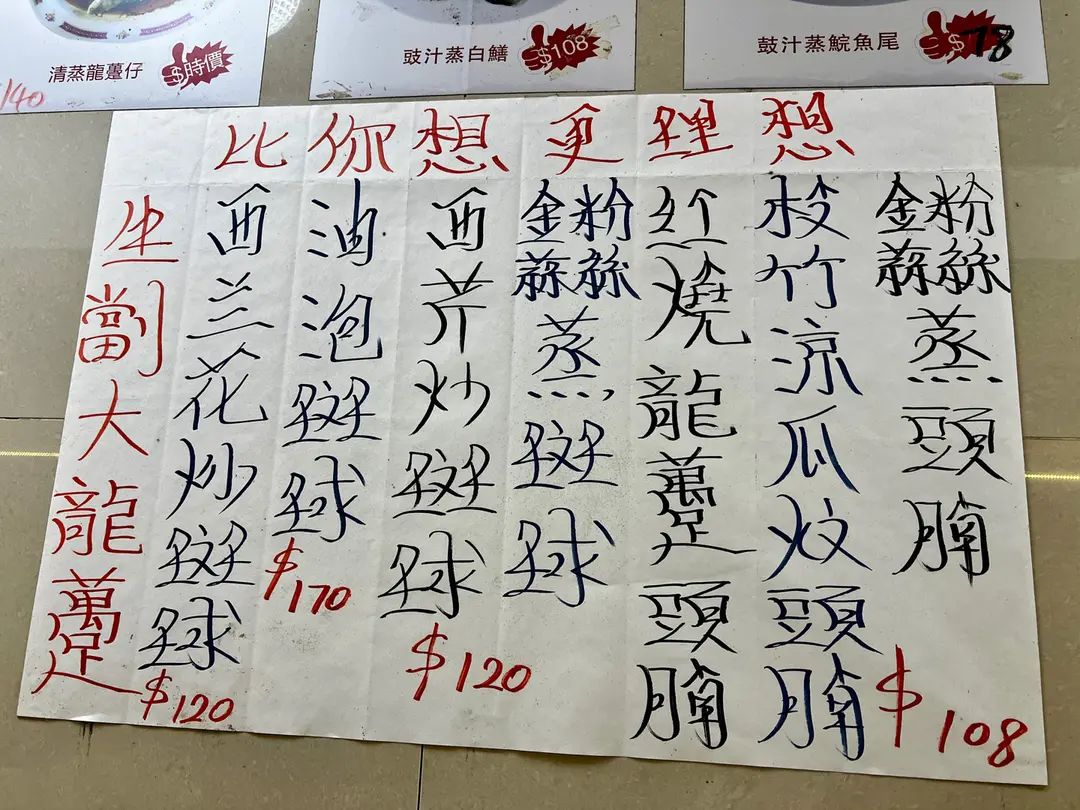 清蒸龍躉仔 $時價
/140
豉汁蒸白鱔 $108
豉汁蒸鯇魚尾 $78
比你想更理想
生劏大龍躉
西兰花炒斑球 $120
油泡斑球 $170
西芹炒斑球 $120
金蒜粉絲蒸斑球
紅燒龍躉頭腩
枝竹涼瓜炆頭腩
金蒜粉絲蒸頭腩
$108